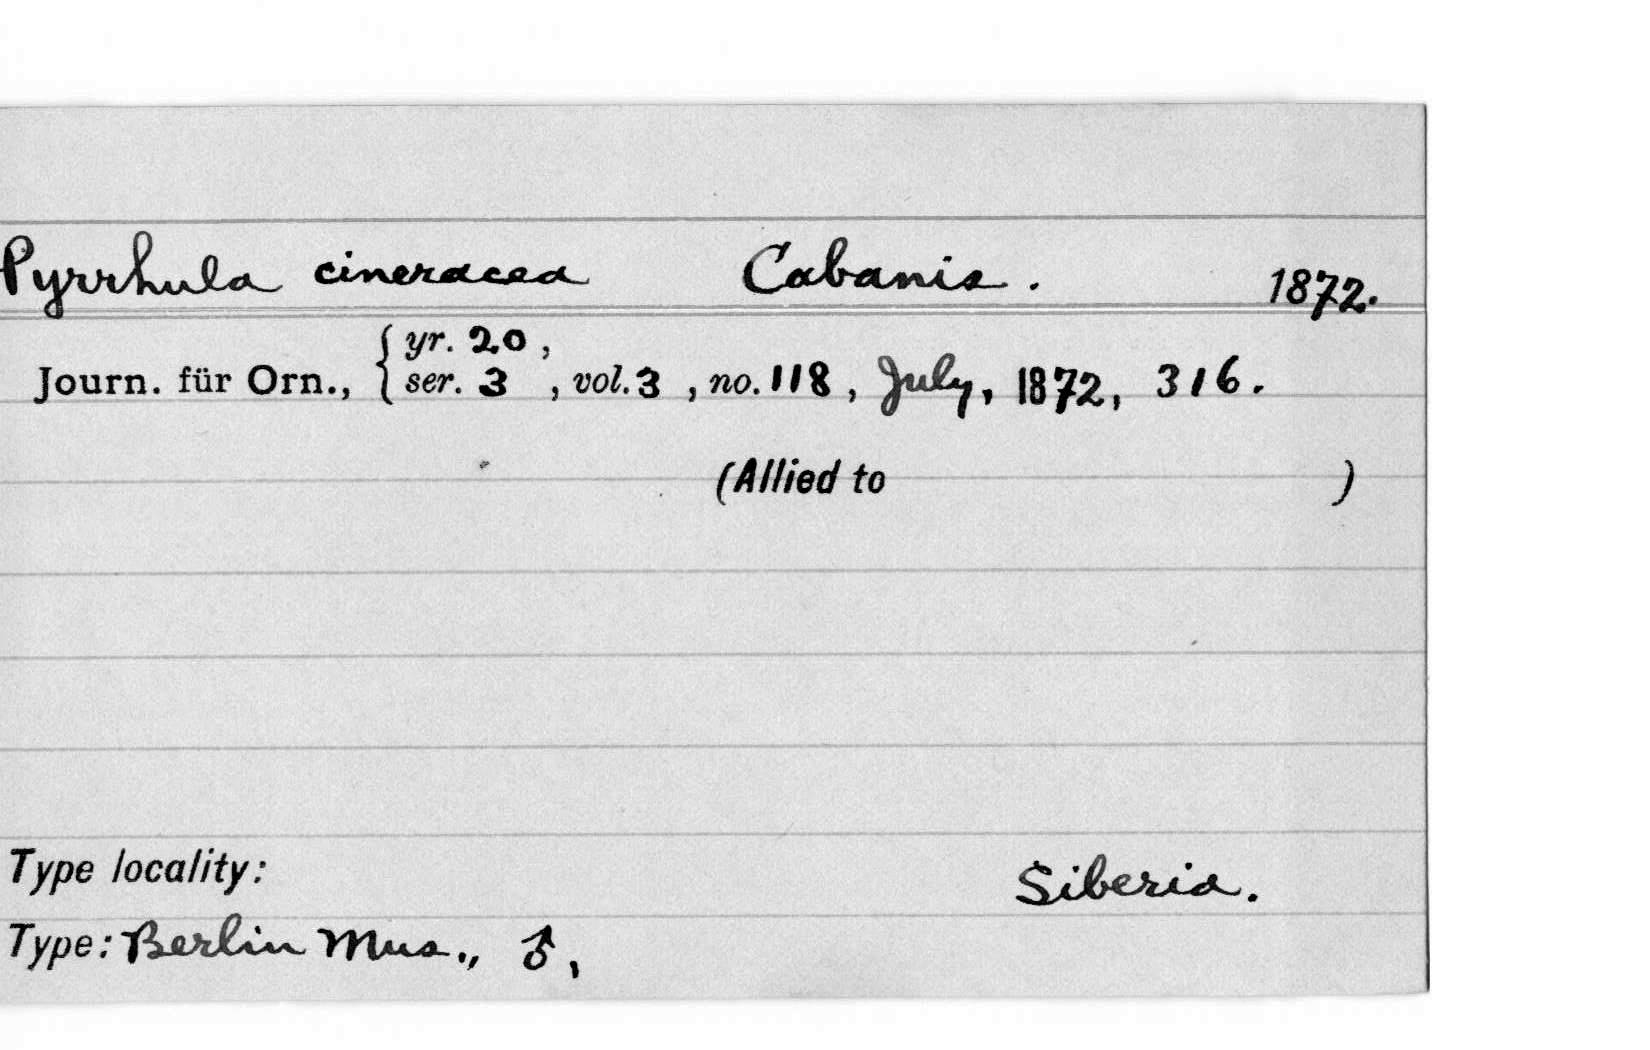 Pyrrhula cineracea Cabanis. 1872.
yr. 20,
Journ. für Orn., ser. 3, vol. 3, no. 118, July, 1872, 316.
(Allied to )
Type locality: Siberia.
Type: Berlin Mus., ♂,